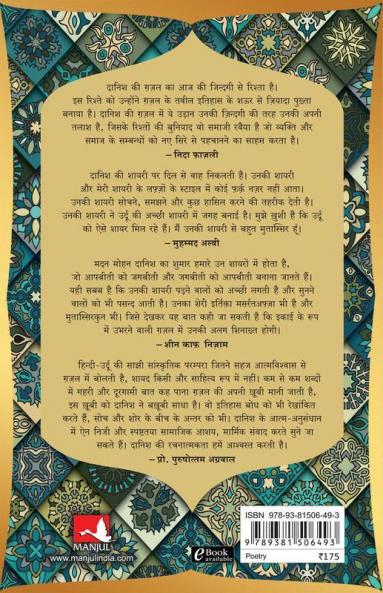 दानिश की ग़ज़ल का आज की ज़िन्दगी से रिश्ता है।
इस रिश्ते को उन्होंने ग़ज़ल के तवील इतिहास के शऊर से ज़ियादा पुख़्ता
बनाया है। दानिश की ग़ज़ल में ये उड़ान उनकी ज़िन्दगी की तरह उनकी अपनी
तलाश है, जिसके रिश्तों की बुनियाद वो समाजी रवैया है जो व्यक्ति और
समाज के सम्बन्धों को नए सिरे से पहचानने का साहस करता है।
–निदा फ़ाज़ली
दानिश की शायरी पर दिल से वाह निकलती है। उनकी शायरी
और मेरी शायरी के लफ़्ज़ों के स्टाइल में कोई फ़र्क़ नज़र नहीं आता।
उनकी शायरी सोचने, समझने और कुछ हासिल करने की तहरीक देती है।
उनकी शायरी ने उर्दू की अच्छी शायरी में जगह बनाई है। मुझे ख़ुशी है कि उर्दू
को ऐसे शायर मिल रहे हैं। मैं उनकी शायरी से बहुत मुतास्सिर हूँ।
–मुहम्मद अल्वी
मदन मोहन दानिश का शुमार हमारे उन शायरों में होता है,
जो आपबीती को जगबीती और जगबीती को आपबीती बनाना जानते हैं।
यही सबब है कि उनकी शायरी पढ़ने वालों को अच्छी लगती है और सुनने
वालों को भी पसन्द आती है। उनका शेरी इर्तिक़ा मसर्रतअफ़्ज़ा भी है और
मुतास्सिरकुन भी। जिसे देखकर यह बात कही जा सकती है कि इकाई के रूप
में उभरने वाली ग़ज़ल में उनकी अलग शिनाख़्त होगी।
–शीन काफ़ निज़ाम
हिन्दी-उर्दू की साझी सांस्कृतिक परम्परा जितने सहज आत्मविश्वास से
ग़ज़ल में बोलती है, शायद किसी और साहित्य रूप में नहीं। कम से कम शब्दों
में गहरी और दूरगामी बात कह पाना ग़ज़ल की अपनी ख़ूबी मानी जाती है,
इस ख़ूबी को दानिश ने बख़ूबी साधा है। वो इतिहास बोध को भी रेखांकित
करते हैं, सोच और शोर के बीच के अन्तर को भी। दानिश के आत्म-अनुसंधान
में ऐन निजी और स्पष्टतया सामाजिक आशय, मार्मिक संवाद करते सुने जा
सकते हैं। दानिश की रचनात्मकता हमें आश्वस्त करती है।
–प्रो. पुरुषोत्तम अग्रवाल
MANJUL
www.manjulindia.com
eBook
available
ISBN 978-93-81506-49-3
9 789381 506493
Poetry ₹175